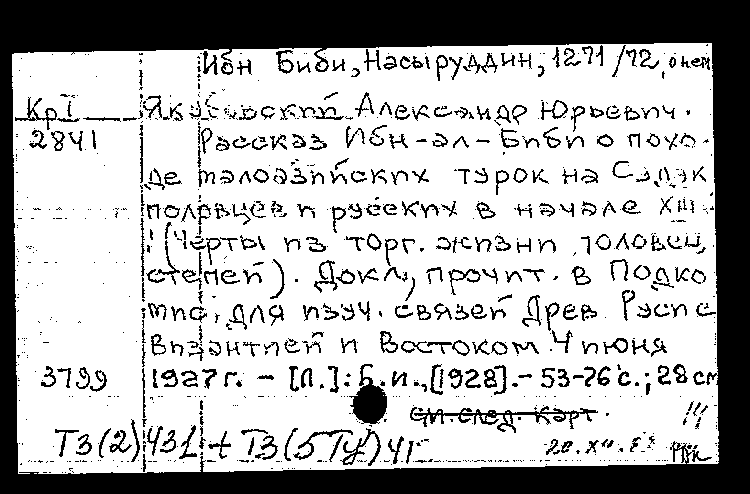 Ибн Биби, Насыруддин, 1271/72, о нем
Кр I Якубовский Александр Юрьевич.
2841 Рассказ Ибн-ал-Биби о похо-
де малоазийских турок на Судак
половцев и русских в начале XIII
(Черты из торг. жизни половец.
степей). Докл., прочит. в Подко
мис. для изуч. связей Древ. Руси с
Византией и Востоком 4 июня
3799 1927 г. - [Л.]: Б.и., [1928]. - 53-76 с.; 28 см
см. след. карт.
Т3(2)431 + Т3(5Ту)41